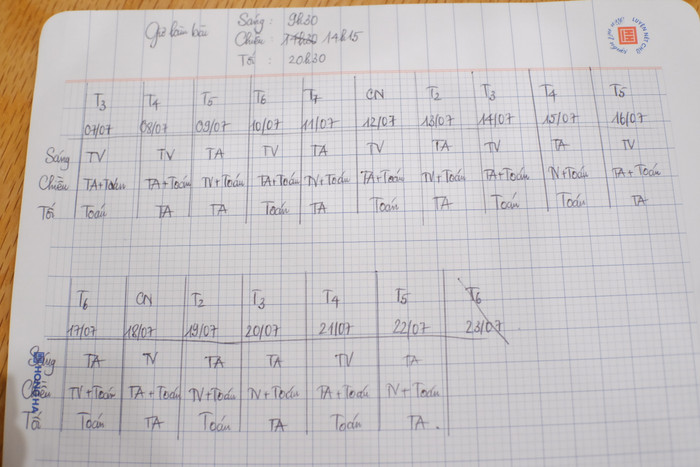 Giờ làm bài
Sáng: 9h30
Chiều: 14h15
Tối: 20h30
LUYỆN NÉT CHỮ
T3 T4 T5 T6 T7 CN T2 T3 T4 T5
07/07 08/07 09/07 10/07 11/07 12/07 13/07 14/07 15/07 16/07
Sáng TV TV TA TV TA TV TA TV TA TV
Chiều TA+Toán TA+Toán TV+Toán TA+Toán TV+Toán TA+Toán TV+Toán TA+Toán TV+Toán TA+Toán
Tối Toán TA TA Toán TA Toán TA Toán Toán TA
T6 CN T2 T3 T4 T5 T6
17/07 18/07 19/07 20/07 21/07 22/07 23/07
Sáng TA TV TA TA TV TA
Chiều TV+Toán TA+Toán TV+Toán TV+Toán TA+Toán TV+Toán
Tối Toán TA Toán TA Toán TA.
HONG HA